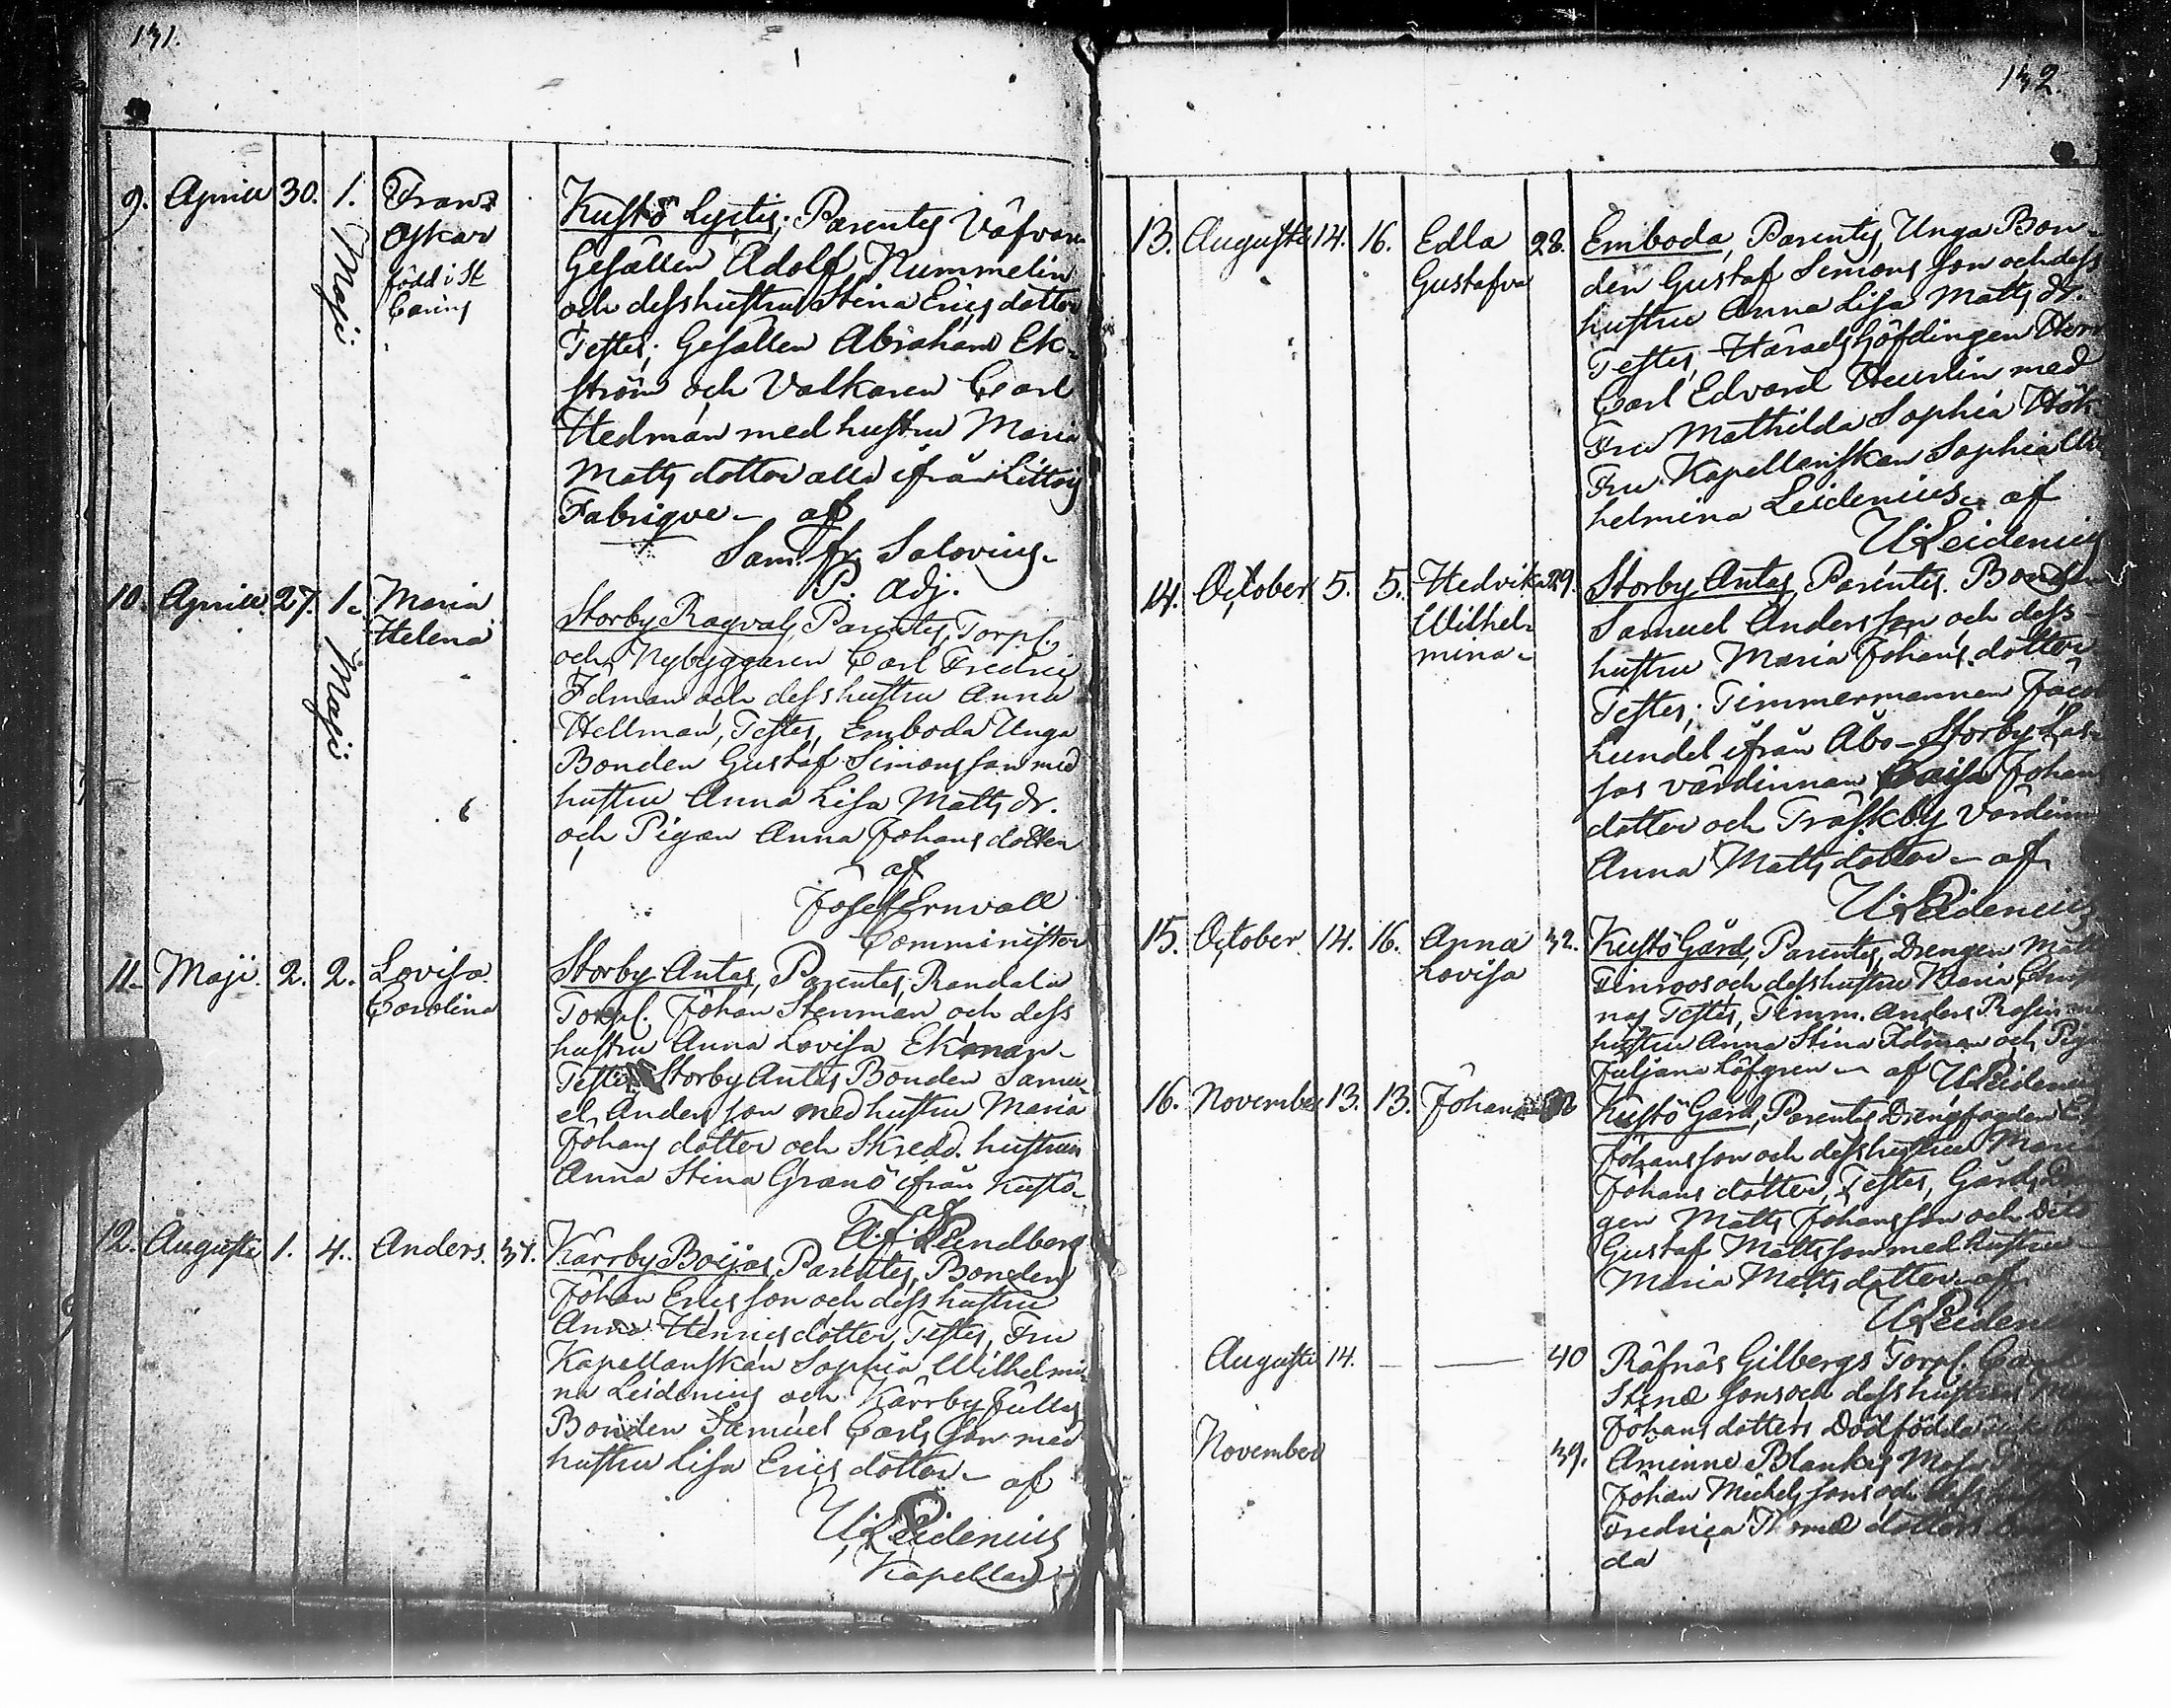 131.
9. Aprill 30. 1. Maji Franz
Oskar
född i St
Carins
Kustö Lyctis; Parentes Väfvare
Gesällen Adolf Rummelin
och desshustru Stina Ericsdotter
Testes; Gesällen Abraham Ek-
ström och Valkaren Carl
Hedman med hustru Maria
Matts dotter alla ifrån Littois
Fabrique - af
Sam. Fr. Salovius
P. Adj.
10. Aprill. 27. 1. Maji Maria
Helena
Storby Ragvals, Parentes, Torpf.
och Nybyggaren Carl Fredric
Idman och desshustru Anna
Hellman, Testes, Emboda Unga
Bonden Gustaf Simonsson med
hustru Anna Lisa Matts dr.
och Pigan Anna Johans dotter
af
Josef Ernvall
Comminister
11. Maji. 2. 2. Lovisa
Carolina
Storby Antas, Parentes, Randala
Torpf. Johan Stenman och dess
hustru Anna Lovisa Ekman-
Testes Storby Antas Bonden Samu-
el Andersson med hustru Maria
Johans dotter och Skredd. hustrun
Anna Stina Granö ifrån Kustö-
af
A. f. Sundberg
12. Augusti 1. 4. Anders. 37.
Kärrby Böijas, Parentes, Bonden
Johan Ericsson och dess hustru
Anna Henricsdotter, Testes, Fru
Kapellanskan Sophia Wilhelmi-
na Leidenius och Kärrby Jullas
Bonden Samuel Carlsson med
hustru Lisa Erics dotter - af
U. Leidenius
Kapellan
132.
13. Augusti 14. 16. Edla
Gustafva 28.
Emboda, Parentes, Unga Bon-
den Gustaf Simons son och dess
hustru Anna Lisa Matts dr.
Testes, Häradshöfdingen Herr
Carl Edvard Heurlin med
Fru Mathilda Sophia Höck
Fru Kapellanskan Sophia Wil
helmina Leidenius - af
U. Leidenius
14. October 5. 5. Hedvika
Wilhel-
mina - 29.
Storby Antas, Parentes. Bonden
Samuel Andersson och dess
hustru Maria Johans dotter
Testes; Timmermannen Jacob
Lundel ifrån Åbo - Storby Las-
sas värdinnan Caisa Johans
dotter och Träskby Värdinn
Anna Matts dotter - af
U. Leidenius
15. October 14. 16. Anna
Lovisa 32.
Kustö Gård, Parentes, Drengen Matts
Finroos och desshustru Maria
Testes, Timm. Anders Rosin
hustru Anna Stina Idman och Pig
Juljana Löfgren - af U. Leidenius
16. November 13. 13. Johan
Kustö Gård, Parentes Drengfogden
Johansson och desshustru Maria
Johans dotter, Testes, Gårds Dren
gen Matts Johansson och Dito
Gustaf Mattsson med hustru
Maria Matts dotter - af
U. Leidenius
Augusti 14. — — 40
Räfnäs Gilbergs Torpf. Carl
Stens sons och dess hustrus
Johans dotters Dödfödda
November 39.
Åminne Blankas
Johan Michels sons och dess
Fredrica Thomæ dotters
da